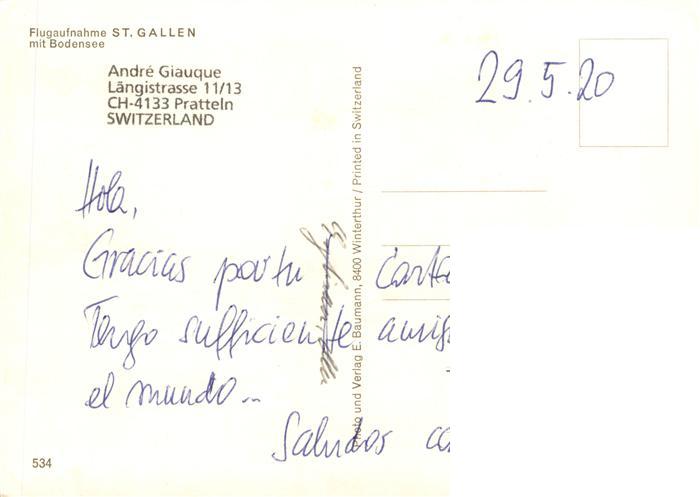 Flugaufnahme ST. GALLEN
mit Bodensee
André Giauque
Längistrasse 11/13
CH-4133 Pratteln
SWITZERLAND
29.5.20
Hola,
Gracias por tu
Tengo sufficiente
el mundo...
Saludos
Photo und Verlag E. Baumann, 8400 Winterthur / Printed in Switzerland
534